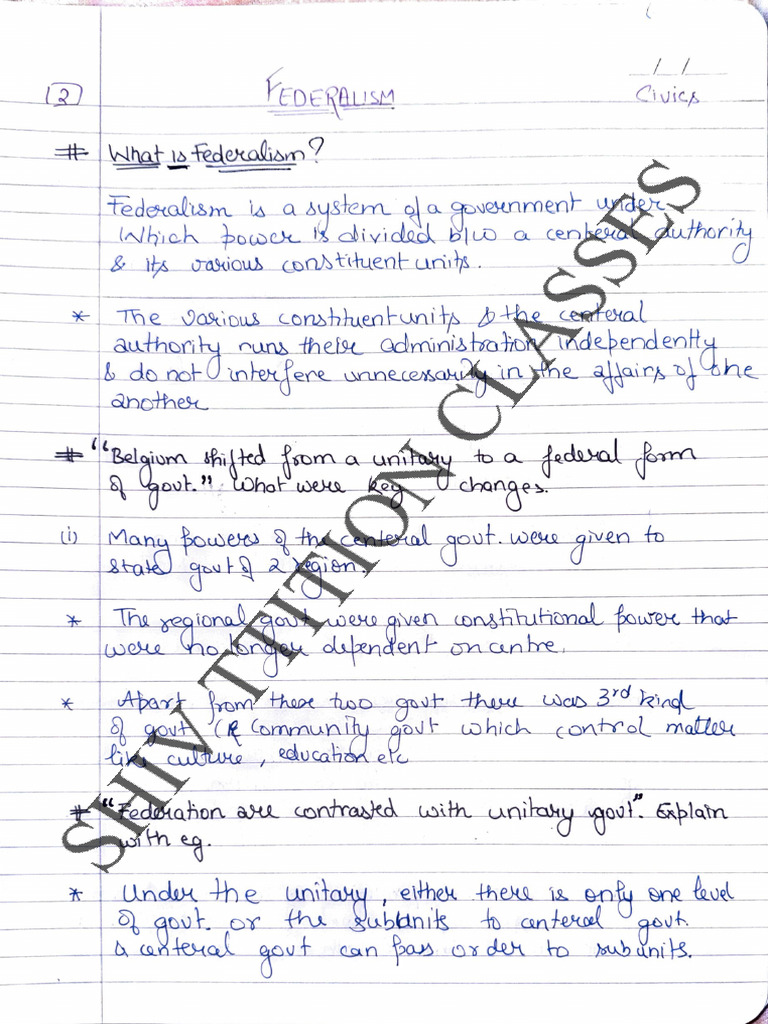 / /
[2] FEDERALISM Civics
# What is Federalism?
Federalism is a system of a government under
which power is divided b/w a centeral authority
& its various constituent units.
* The various constituent units & the centeral
authority runs their administration independently
& do not interfere unnecessarily in the affairs of one
another
# "Belgium shifted from a unitary to a federal form
of govt." What were key changes.
(i) Many powers of the centeral govt. were given to
state govt of 2 region.
* The regional govt were given constitutional power that
were no longer dependent on centre.
* Apart from these two govt there was 3rd kind
of govt Community govt which control matter
like culture, education etc
# "Federation are contrasted with unitary govt". Explain
with eg.
* Under the unitary, either there is only one level
of govt. or the subunits to centeral govt.
A centeral govt can pass order to subunits.
SHIV TTITION CLASSES